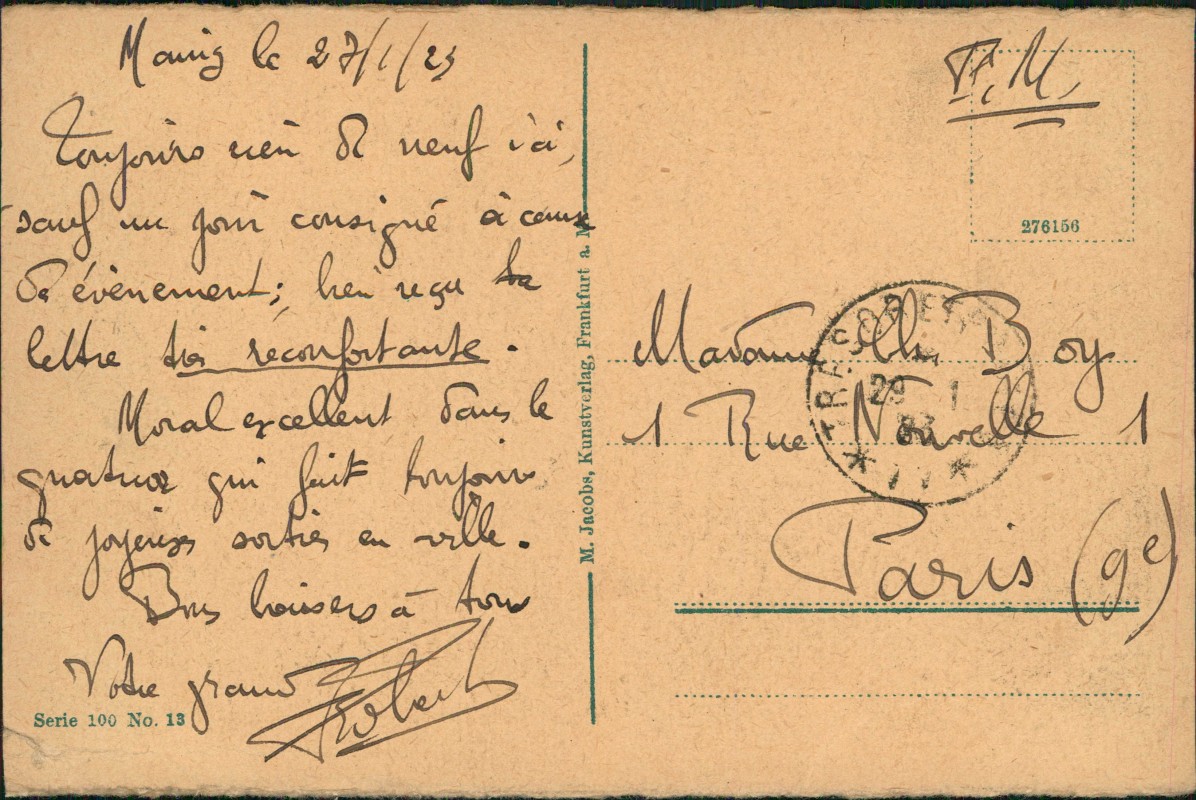 le 27/1/23
Toujours rien de neuf ici,
sauf un jour consigné à cause
de évènement ; bien reçu ta
lettre très réconfortante.
Moral excellent dans le
quatuor qui fait toujours
de joyeuses sorties en ville.
Bons baisers à tous
Votre grand Robert
Serie 100 No. 13
M. Jacobs, Kunstverlag, Frankfurt a. M.
F. M.
276156
Madame Boy
1 Rue Nouvelle 1
Paris (9e)
29 1